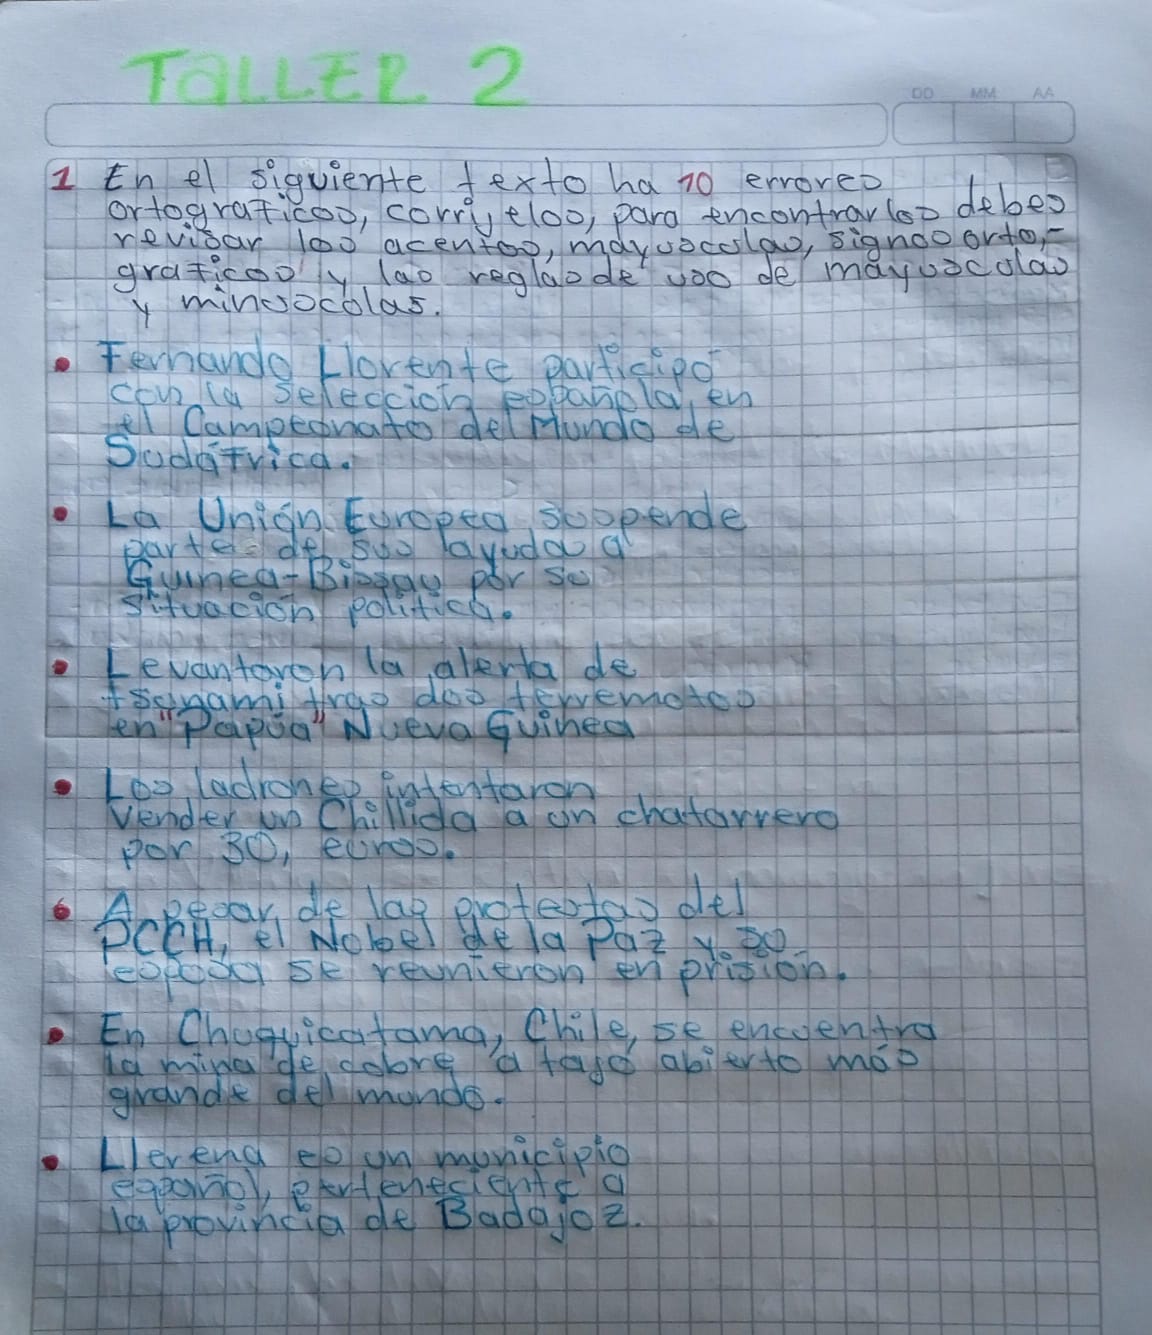 TALLER 2
DD MM AA
1 En el siguiente texto ha 10 errores
ortograficos, corrijelos, para encontrarlos debes
revisar los acentos, mayusculas, signos orto,-
graficos y las reglas de uso de mayusculas
y minusculas.
• Fernando Llorente participó
con la selección española, en
el Campeonato del Mundo de
Sudáfrica.
• La Unión Europea suspende
parte de sus ayuda a
Guinea-Bissau por su
situación política.
• Levantaron la alerta de
tsunami tras dos terremotos
en "Papúa" Nueva Guinea
• Los ladrones intentaron
Vender un Chillida a un chatarrero
por 30, euros.
• A pesar, de las protestas del
PCCH, el Nobel de la Paz y so
esposa se reunieron en prisión.
• En Chuquicatama, Chile, se encuentra
la mina de cobre a tajo abierto más
grande del mundo.
• Llerena es un municipio
español, perteneciente a
la provincia de Badajoz.